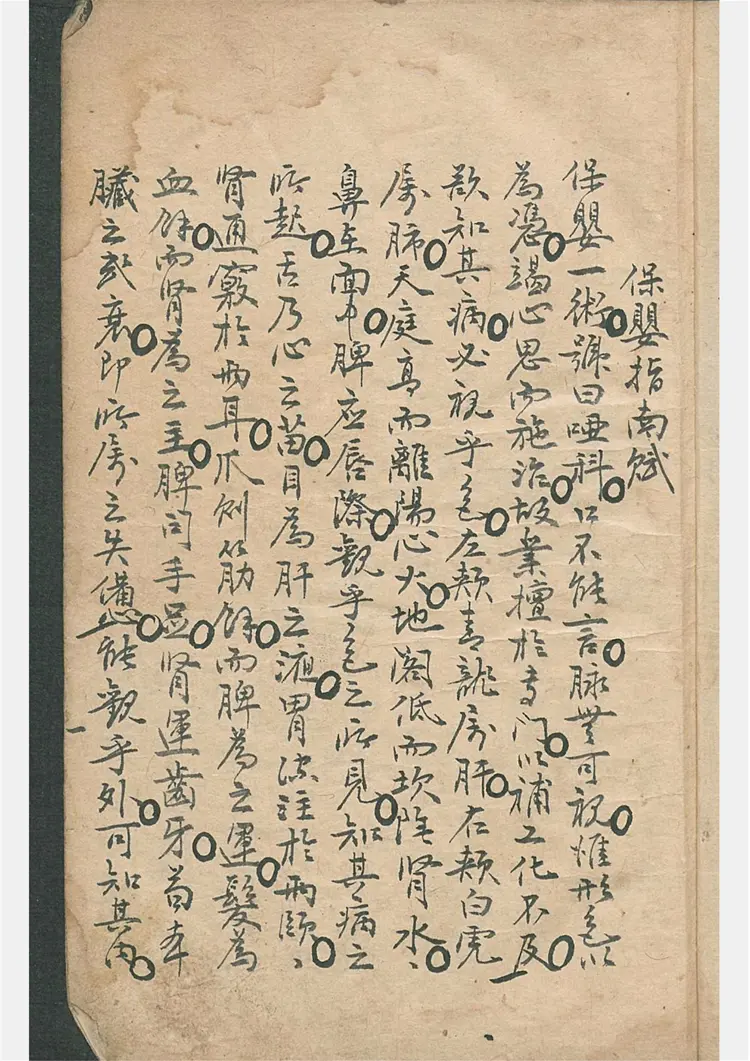 保嬰指南賦
保嬰一術。號曰啞科。口不能言。脉無可視。惟形色以
為憑。竭心思而施治。故業擅於專门。以補工化不及。
欲知其病。必視乎色。左頰青龍屬肝。右頰白虎
屬肺。天庭高而離陽心火。地閣低而坎陰腎水。
鼻在面中。脾应唇際。觀乎色之所見。知其病之
所起。舌乃心之苗。目為肝之液。胃流注於兩頤。
腎通竅於兩耳。爪則筋餘。而脾為之運。髮為
血餘。而腎為之主。脾司手足。腎運齒牙。苟本
臟之或衰。即所屬之失備。能觀乎外。可知其內。